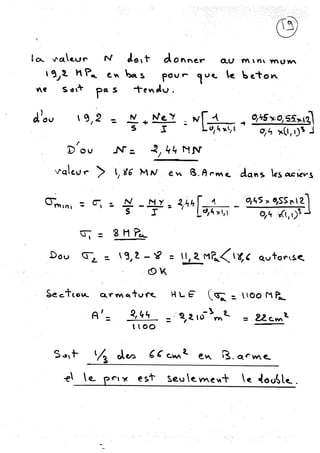 19
la valeur N doit donner au minimum
19,2 MPa en bas pour que le beton
ne soit pas tendu.
d'ou 19,2 = N/S + NeY/I = N [ 1/0,4x1,1 + 0,45x0,55x12/0,4x(1,1)³ ]
D'ou N = 2,44 MN
valeur > 1,86 MN en B.Arme dans les aciers
σmini = σ₁ = N/S - MY/I = 2,44 [ 1/0,4x1,1 - 0,45x0,55x12/0,4x(1,1)³ ]
σ₁ = 8 MPa
Dou σ₂ = 19,2 - 8 = 11,2 MPa < 18,6 autorise
OK
Section armature HLE (σa = 1100 MPa
A' = 2,44/1100 = 2,2 10⁻³ m² = 22 cm²
Soit 1/3 des 66 cm² en B.arme
et le prix est seulement le double.